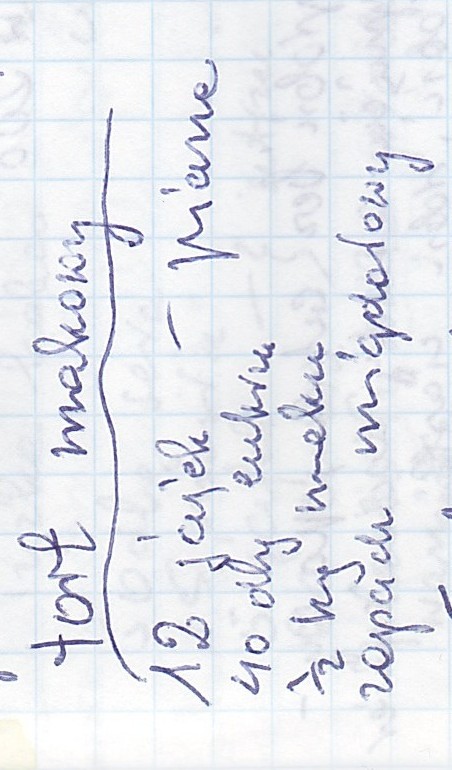 tort makowy
12 jajek – piane
40 dkg cukru
½ kg maku
zapach migdałowy